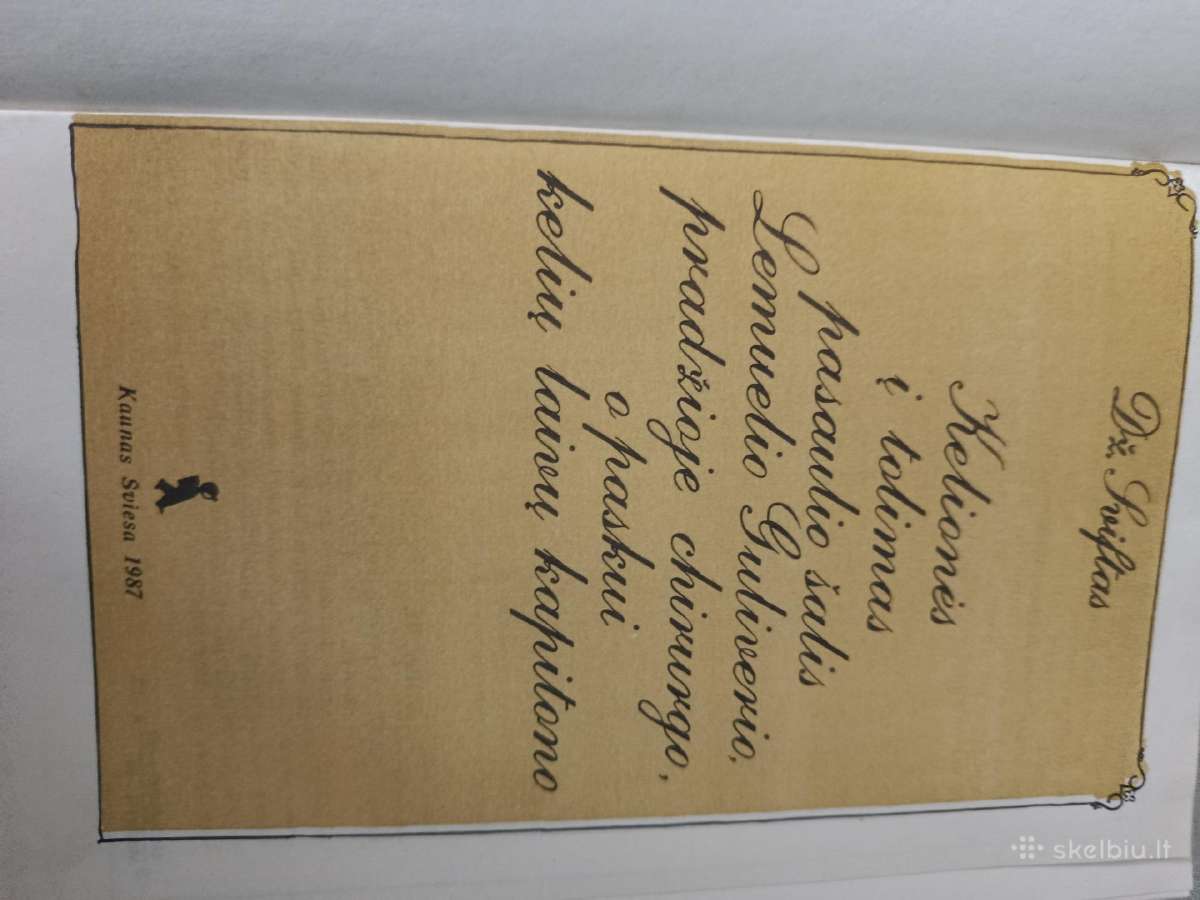 Dž. Sviftas
Kelionės
į tolimas
pasaulio šalis
Lemuelio Guliverio,
pradžioje chirurgo,
o paskui
kelių laivų kapitono
Kaunas Šviesa 1987
skelbiu.lt